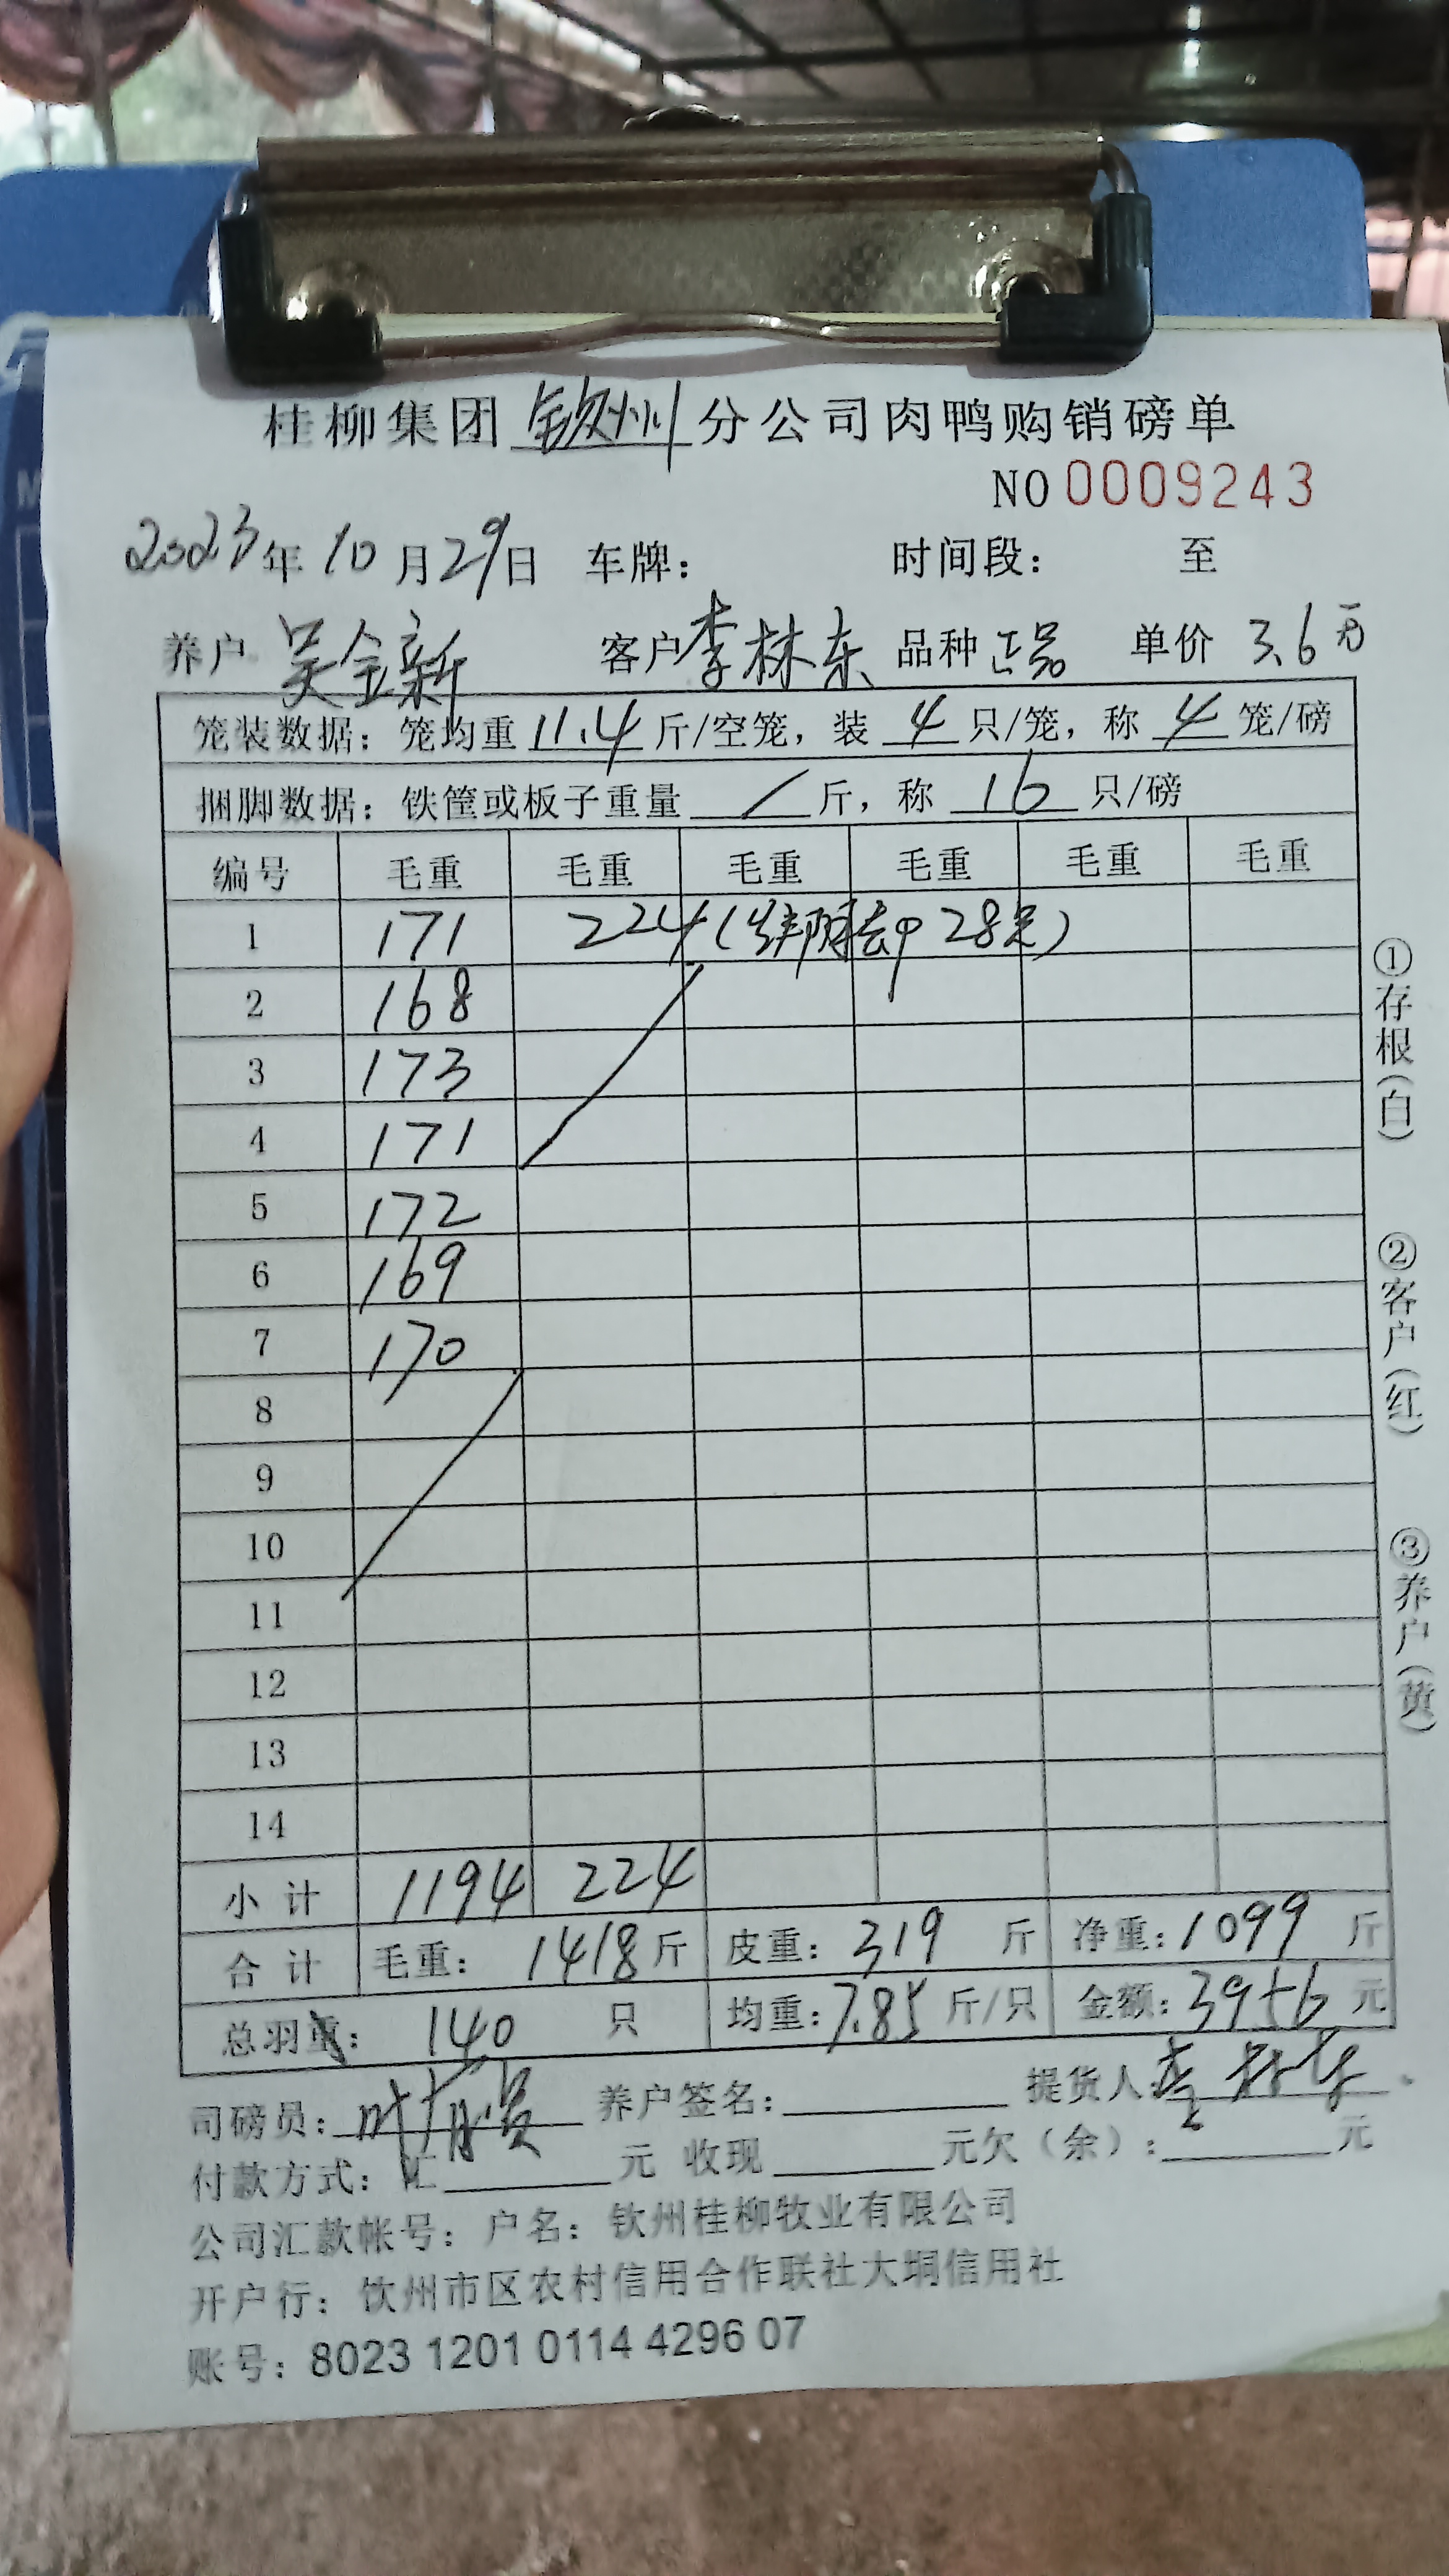 桂柳集团 钦州 分公司肉鸭购销磅单
NO 0009243
2023年10月29日 车牌： 时间段： 至
养户 吴金新 客户 李林东 品种 正品 单价 3.6元
笼装数据：笼均重 11.4 斤/空笼，装 4 只/笼，称 4 笼/磅
捆脚数据：铁筐或板子重量 / 斤，称 16 只/磅
编号 毛重 毛重 毛重 毛重 毛重 毛重
1 171 224 ( 28只)
2 168
3 173
4 171
5 172
6 169
7 170
8
9
10
11
12
13
14
小计 1194 224
合计 毛重：1418斤 皮重：319 斤 净重：1099 斤
总羽重： 140 只 均重：7.85 斤/只 金额：3956 元
司磅员： 养户签名： 提货人：李林东
付款方式：汇 元 收现 元欠（余）： 元
公司汇款帐号：户名：钦州桂柳牧业有限公司
开户行：钦州市区农村信用合作联社大垌信用社
账号：8023 1201 0114 4296 07
①存根(白)
②客户(红)
③养户(黄)